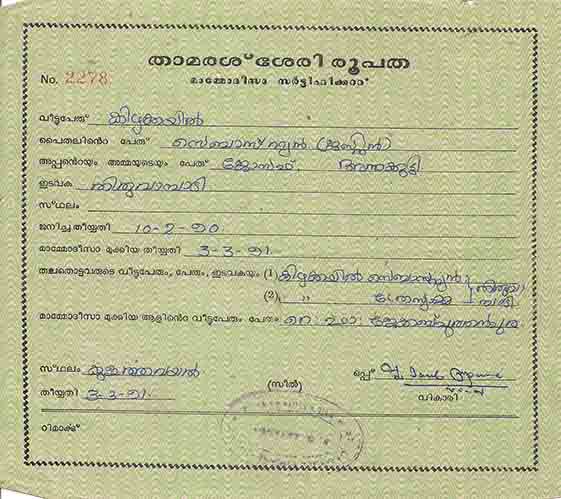 താമരശ്ശേരി രൂപത
No. 2278
മാമ്മോദീസാ സർട്ടിഫിക്കറ്റ്
വീട്ടുപേര് കിഴുക്കയിൽ
പൈതലിൻെറ പേര് സെബാസ്റ്റ്യൻ (ജസ്റ്റിൻ)
അപ്പൻെറയും അമ്മയുടെയും പേര് ജോസഫ്, അന്നക്കുട്ടി
ഇടവക തിരുവാമ്പാടി
സ്ഥലം
ജനിച്ച തീയ്യതി 10-2-90.
മാമ്മോദീസാ മുക്കിയ തീയ്യതി 3-3-91.
തലതൊട്ടവരുടെ വീട്ടുപേരും, പേരും, ഇടവകയും (1) കിഴുക്കയിൽ സെബാസ്റ്റ്യൻ
(2) ,, ത്രേസ്യാമ്മ
മാമ്മോദീസാ മുക്കിയ ആളിൻെറ വീട്ടുപേരും പേരും റെ: ഫാ: ജേക്കബ് പുത്തൻപുര
സ്ഥലം ഒപ്പ്
(സീൽ)
തീയ്യതി 3-3-91. വികാരി
റിമാക്ക്